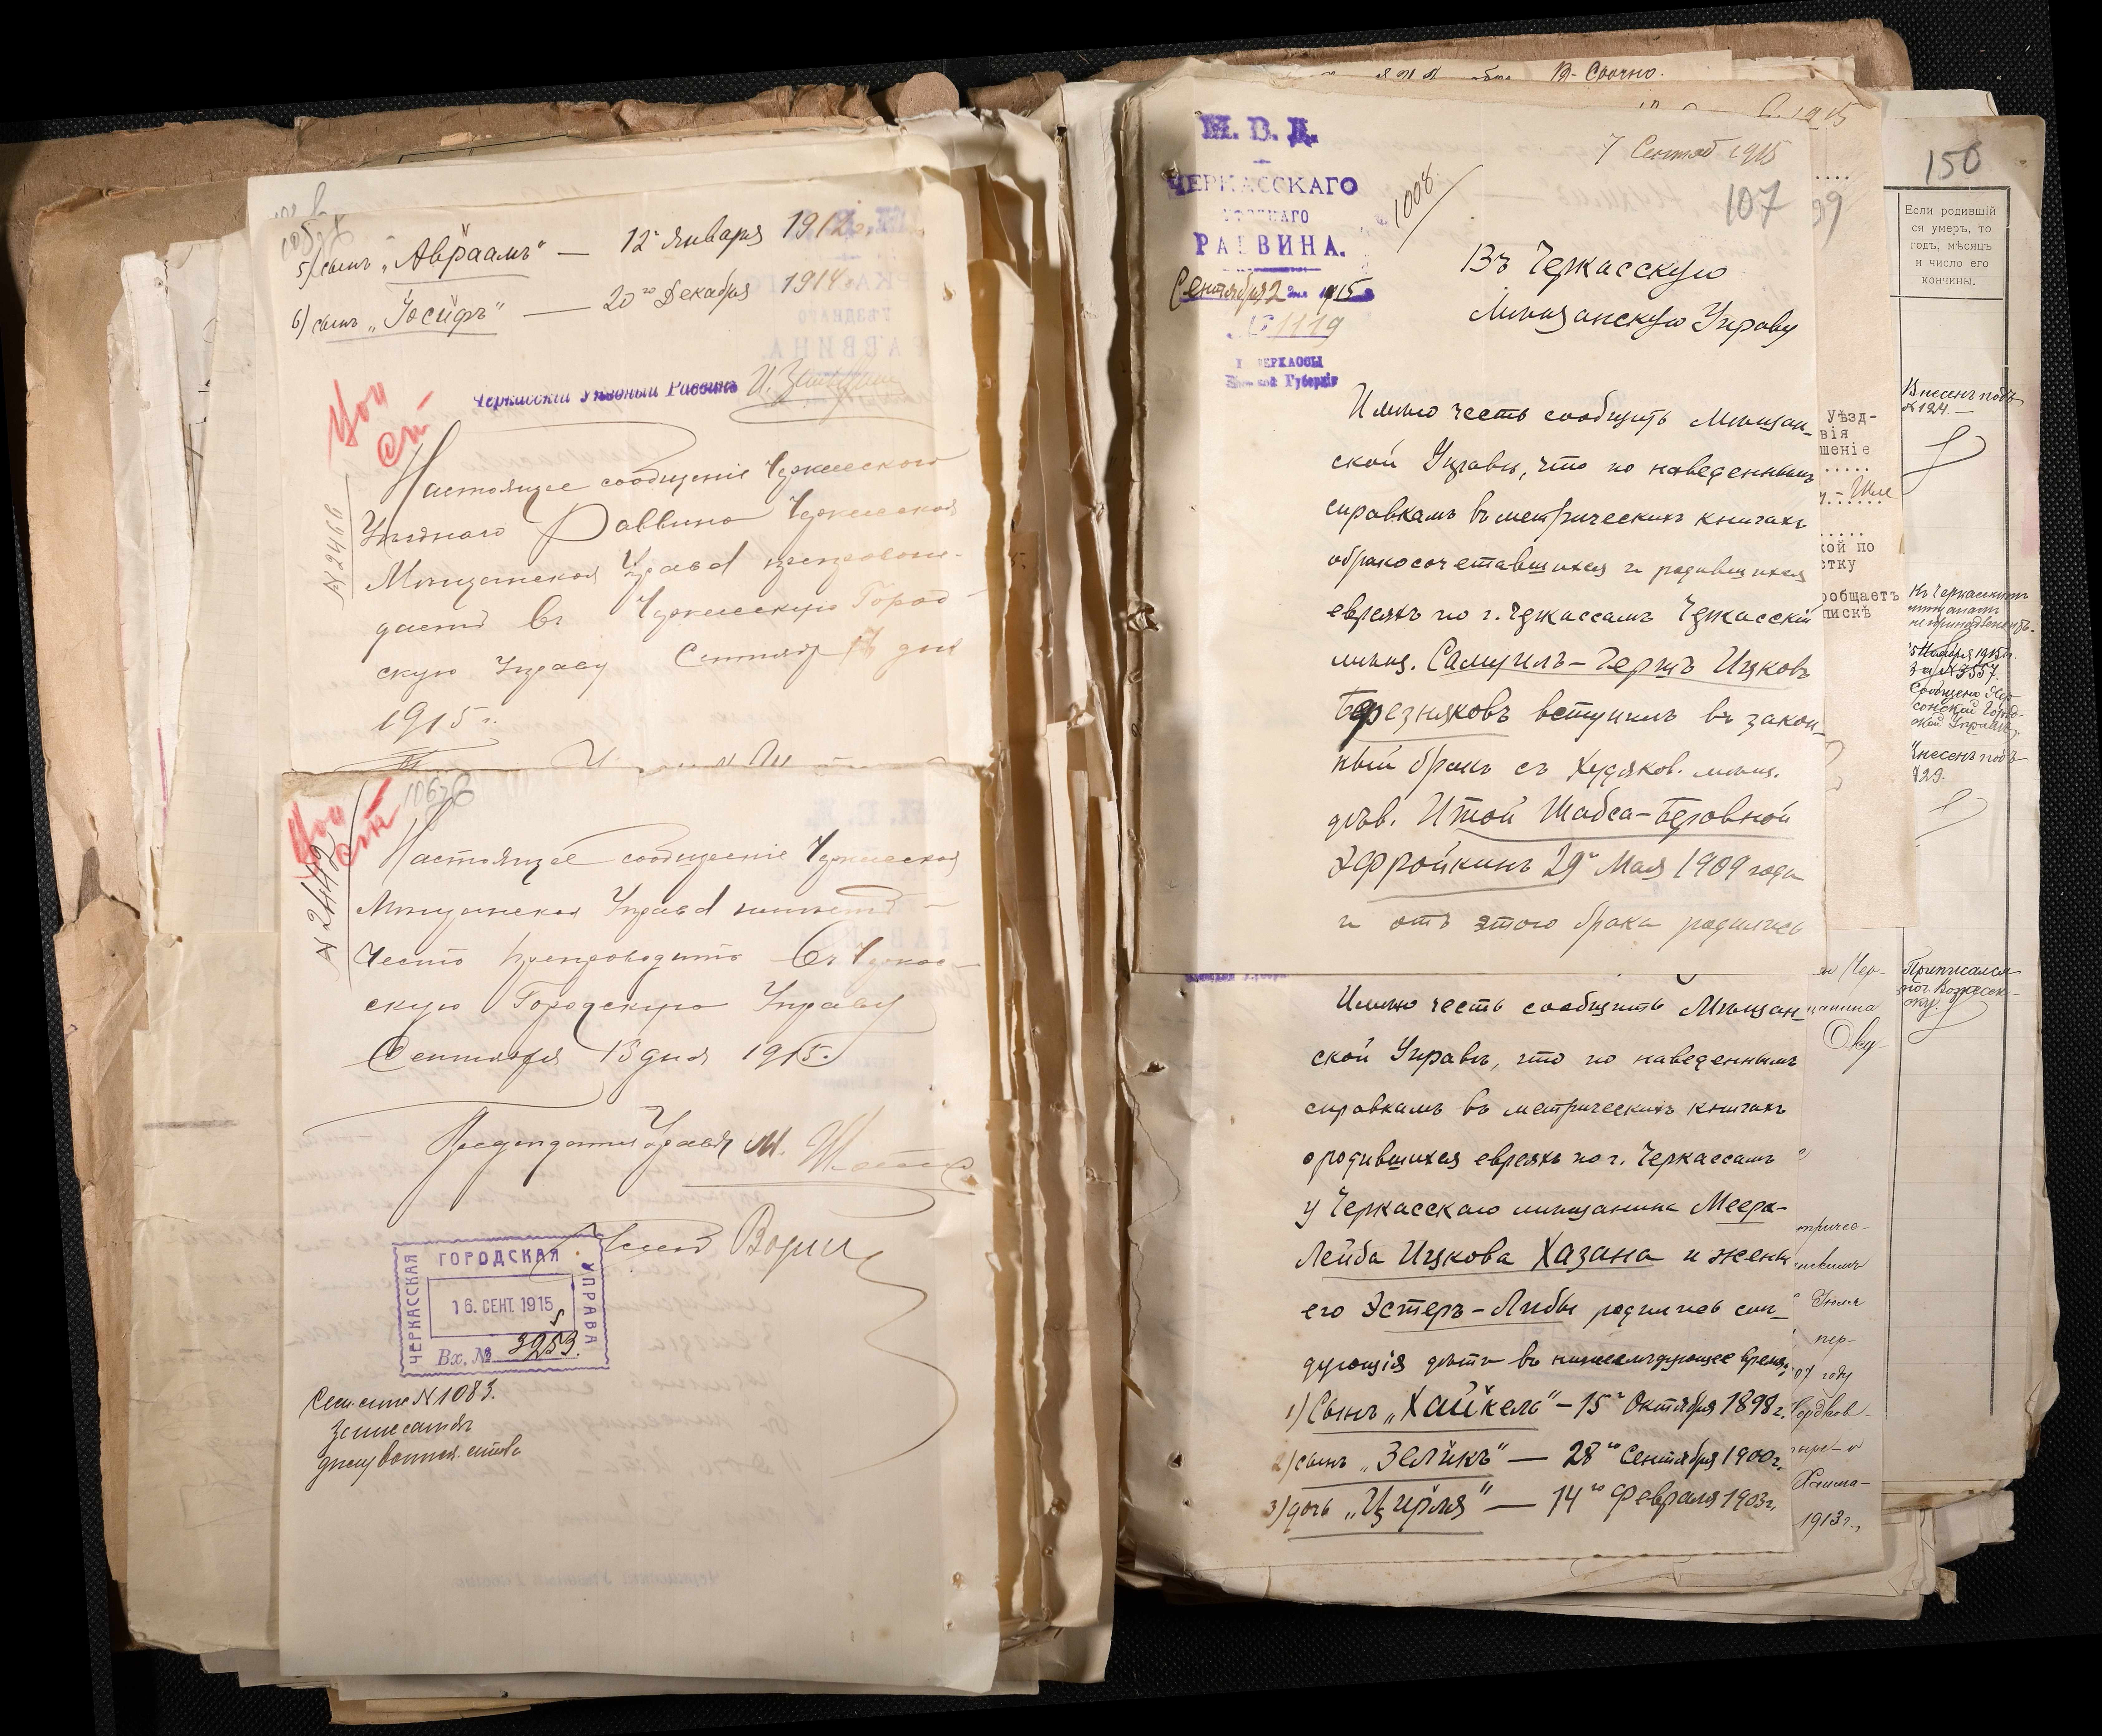 5) сынъ „Авраамъ" — 12го Января 1912г.
6) сынъ „Іосифъ" — 20го Декабря 1914г.
Черкасскій Уѣздный Раввинъ
№ 2466
Настоящее сообщеніе Черкасскаго
Уѣзднаго Раввина Черкасская
Мѣщанская Управа препровож-
даетъ въ Черкасскую Город-
скую Управу Сентября дня
1915 г.
106
№ 2442
Настоящее сообщеніе Черкасская
Мѣщанская Управа имѣетъ
честь препроводить въ Черкас-
скую Городскую Управу
Сентября 15 дня 1915г.
Предсѣдатель Управы М.
ЧЕРКАССКАЯ
ГОРОДСКАЯ
УПРАВА
16. СЕНТ. 1915
Вх. № 3253.
№ 1083.
В. Срочно.
1915
7 Сентяб 1915
107
99
М. В. Д.
ЧЕРКАССКАГО
УѢЗДНАГО
РАВВИНА.
Сентября 2 дня 1915
№ 1119
Г. ЧЕРКАССЫ
Кіевской Губерніи
1008
Въ Черкасскую
Мѣщанскую Управу
Имѣю честь сообщить Мѣщан-
ской Управѣ, что по наведеннымъ
справкамъ въ метрическихъ книгахъ
о бракосочетавшихся и родившихся
евреяхъ по г. Черкассамъ Черкасскій
мѣщ. Самуилъ-Гершъ Ицковъ
Березняковъ вступилъ въ закон-
ный бракъ съ Худяков. мѣщ.
дѣв. Итой Шабса-Беровной
Эфройкинъ 29го Мая 1909 года
и отъ этого брака родились
Имѣю честь сообщить Мѣщан-
ской Управѣ, что по наведеннымъ
справкамъ въ метрическихъ книгахъ
о родившихся евреяхъ по г. Черкассамъ
у Черкасскаго мѣщанина Меера-
Лейба Ицкова Хазана и жены
его Эстеръ-Либы родились слѣ-
дующія дѣти въ нижеслѣдующее время:
1) Сынъ „Хайкель" — 15го Октября 1898г.
2) сынъ „Зеликъ" — 28го Сентября 1900г.
3) дочь „Цирля" — 14го Февраля 1903г.
Уѣзд-
вія
шеніе
кой по
стку
ообщаетъ
пискѣ
07 году
1913г.,
150
Если родившій
ся умеръ, то
годъ, мѣсяцъ
и число его
кончины.
Внесенъ подъ
№ 124.
Къ Черкасскимъ
мѣщанамъ
не
5 Ноября 1915г.
за № 3557.
Сообщено Хер-
сонской Город-
ской Управѣ.
Внесенъ подъ
№ 29.
Приписался